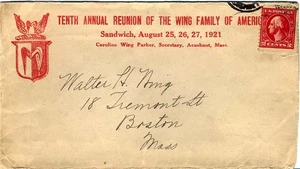 TENTH ANNUAL REUNION OF THE WING FAMILY OF AMERICA
Sandwich, August 25, 26, 27, 1921
Caroline Wing Parker, Secretary, Acushnet, Mass.
Walter H. Wing
18 Tremont St
Boston
Mass
2 CENTS 2